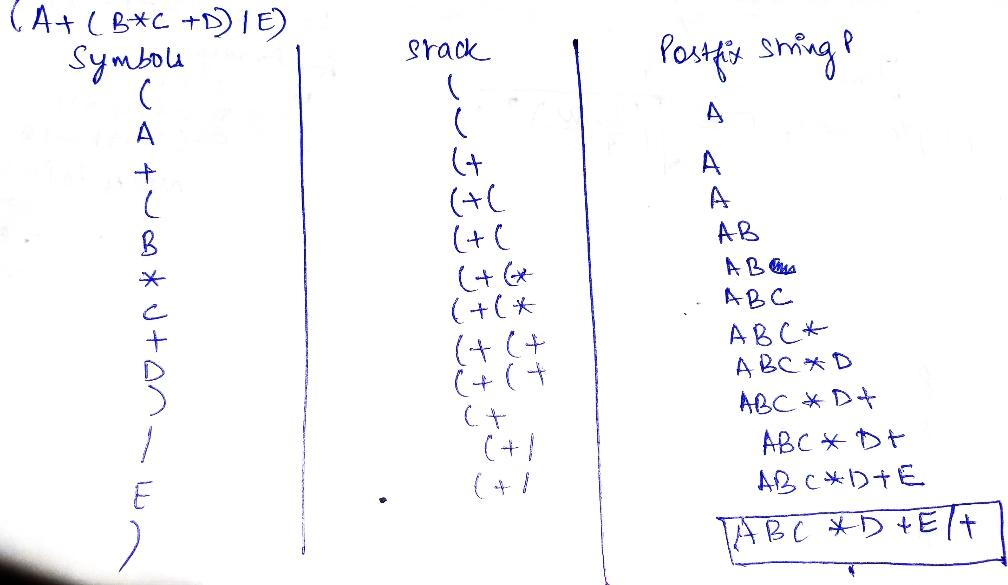 (A+(B*C+D)/E)
Symbols stack Postfix string P
( (
A ( A
+ (+ A
( (+( A
B (+( AB
* (+(* AB
C (+(* ABC
+ (+(+ ABC*
D (+(+ ABC*D
) (+ ABC*D+
/ (+/ ABC*D+
E (+/ ABC*D+E
) ABC*D+E/+